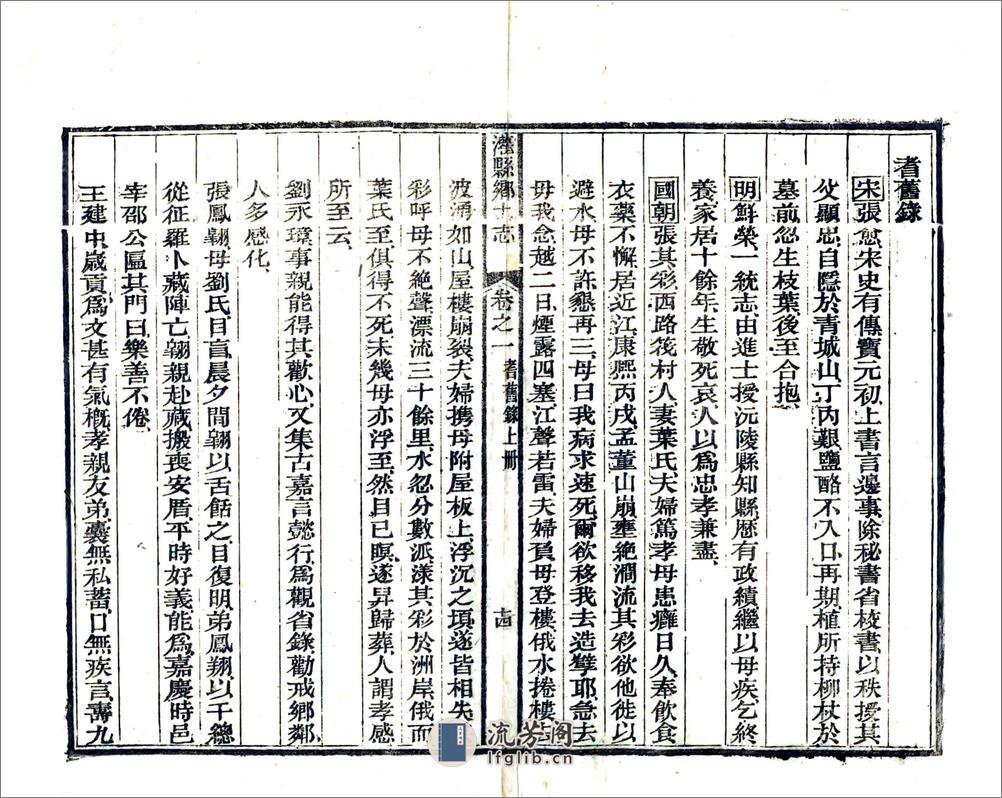 耆舊錄
宋張愈宋史有傳寶元初上書言邊事除秘書省校書以秩授其
父顯忠自隱於青城山丁丙艱鹽酪不入口再期植所持柳杖於
墓前忽生枝葉後至合抱
明鮮榮一統志由進士授沅陵縣知縣歷有政績繼以母疾乞終
養家居十餘年生敬死哀人以爲忠孝兼盡
國朝張其彩西路筏村人妻葉氏夫婦篤孝母患癱日久奉飲食
衣藥不懈居近江康熙丙戌孟董山崩壅絶澗流其彩欲他徙以
避水母不許懇再三母曰我病求速死爾欲移我去造孽耶急去
毋我念越二日煙露四塞江聲若雷夫婦負母登樓俄水捲樓去
灌縣鄉土志 卷之一 耆舊錄上册 十四
波湧如山屋樓崩裂夫婦攜母附屋板上浮沉之頃遂皆相失其
彩呼母不絶聲漂流三十餘里水忽分數派漾其彩於洲岸俄而
葉氏至俱得不死未幾母亦浮至然目已瞑遂昇歸葬人謂孝感
所至云
劉永璸事親能得其歡心又集古嘉言懿行爲觀省錄勸戒鄉鄰
人多感化
張鳳翶母劉氏目盲晨夕間翶以舌餂之目復明弟鳳翔以千總
從征羅卜藏陣亡翶親赴藏搬喪安厝平時好義能爲嘉慶時邑
宰邵公匾其門曰樂善不倦
王建中歲貢爲文甚有氣概孝親友弟囊無私蓄口無疾言壽九
流芳閣
lfglib.cn